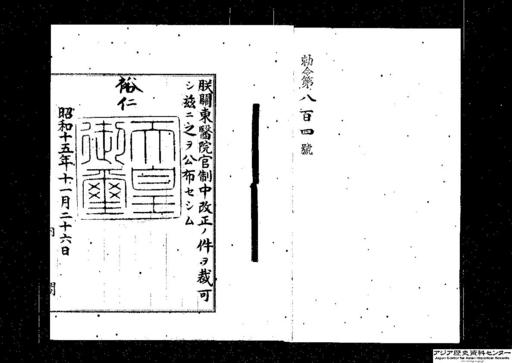 勅令第八百四號
朕關東醫院官制中改正ノ件ヲ裁可
シ玆ニ之ヲ公布セシム
裕仁
天皇御璽
昭和十五年十一月二十六日
内 閣
アジア歴史資料センター
Japan Center for Asian Historical Records